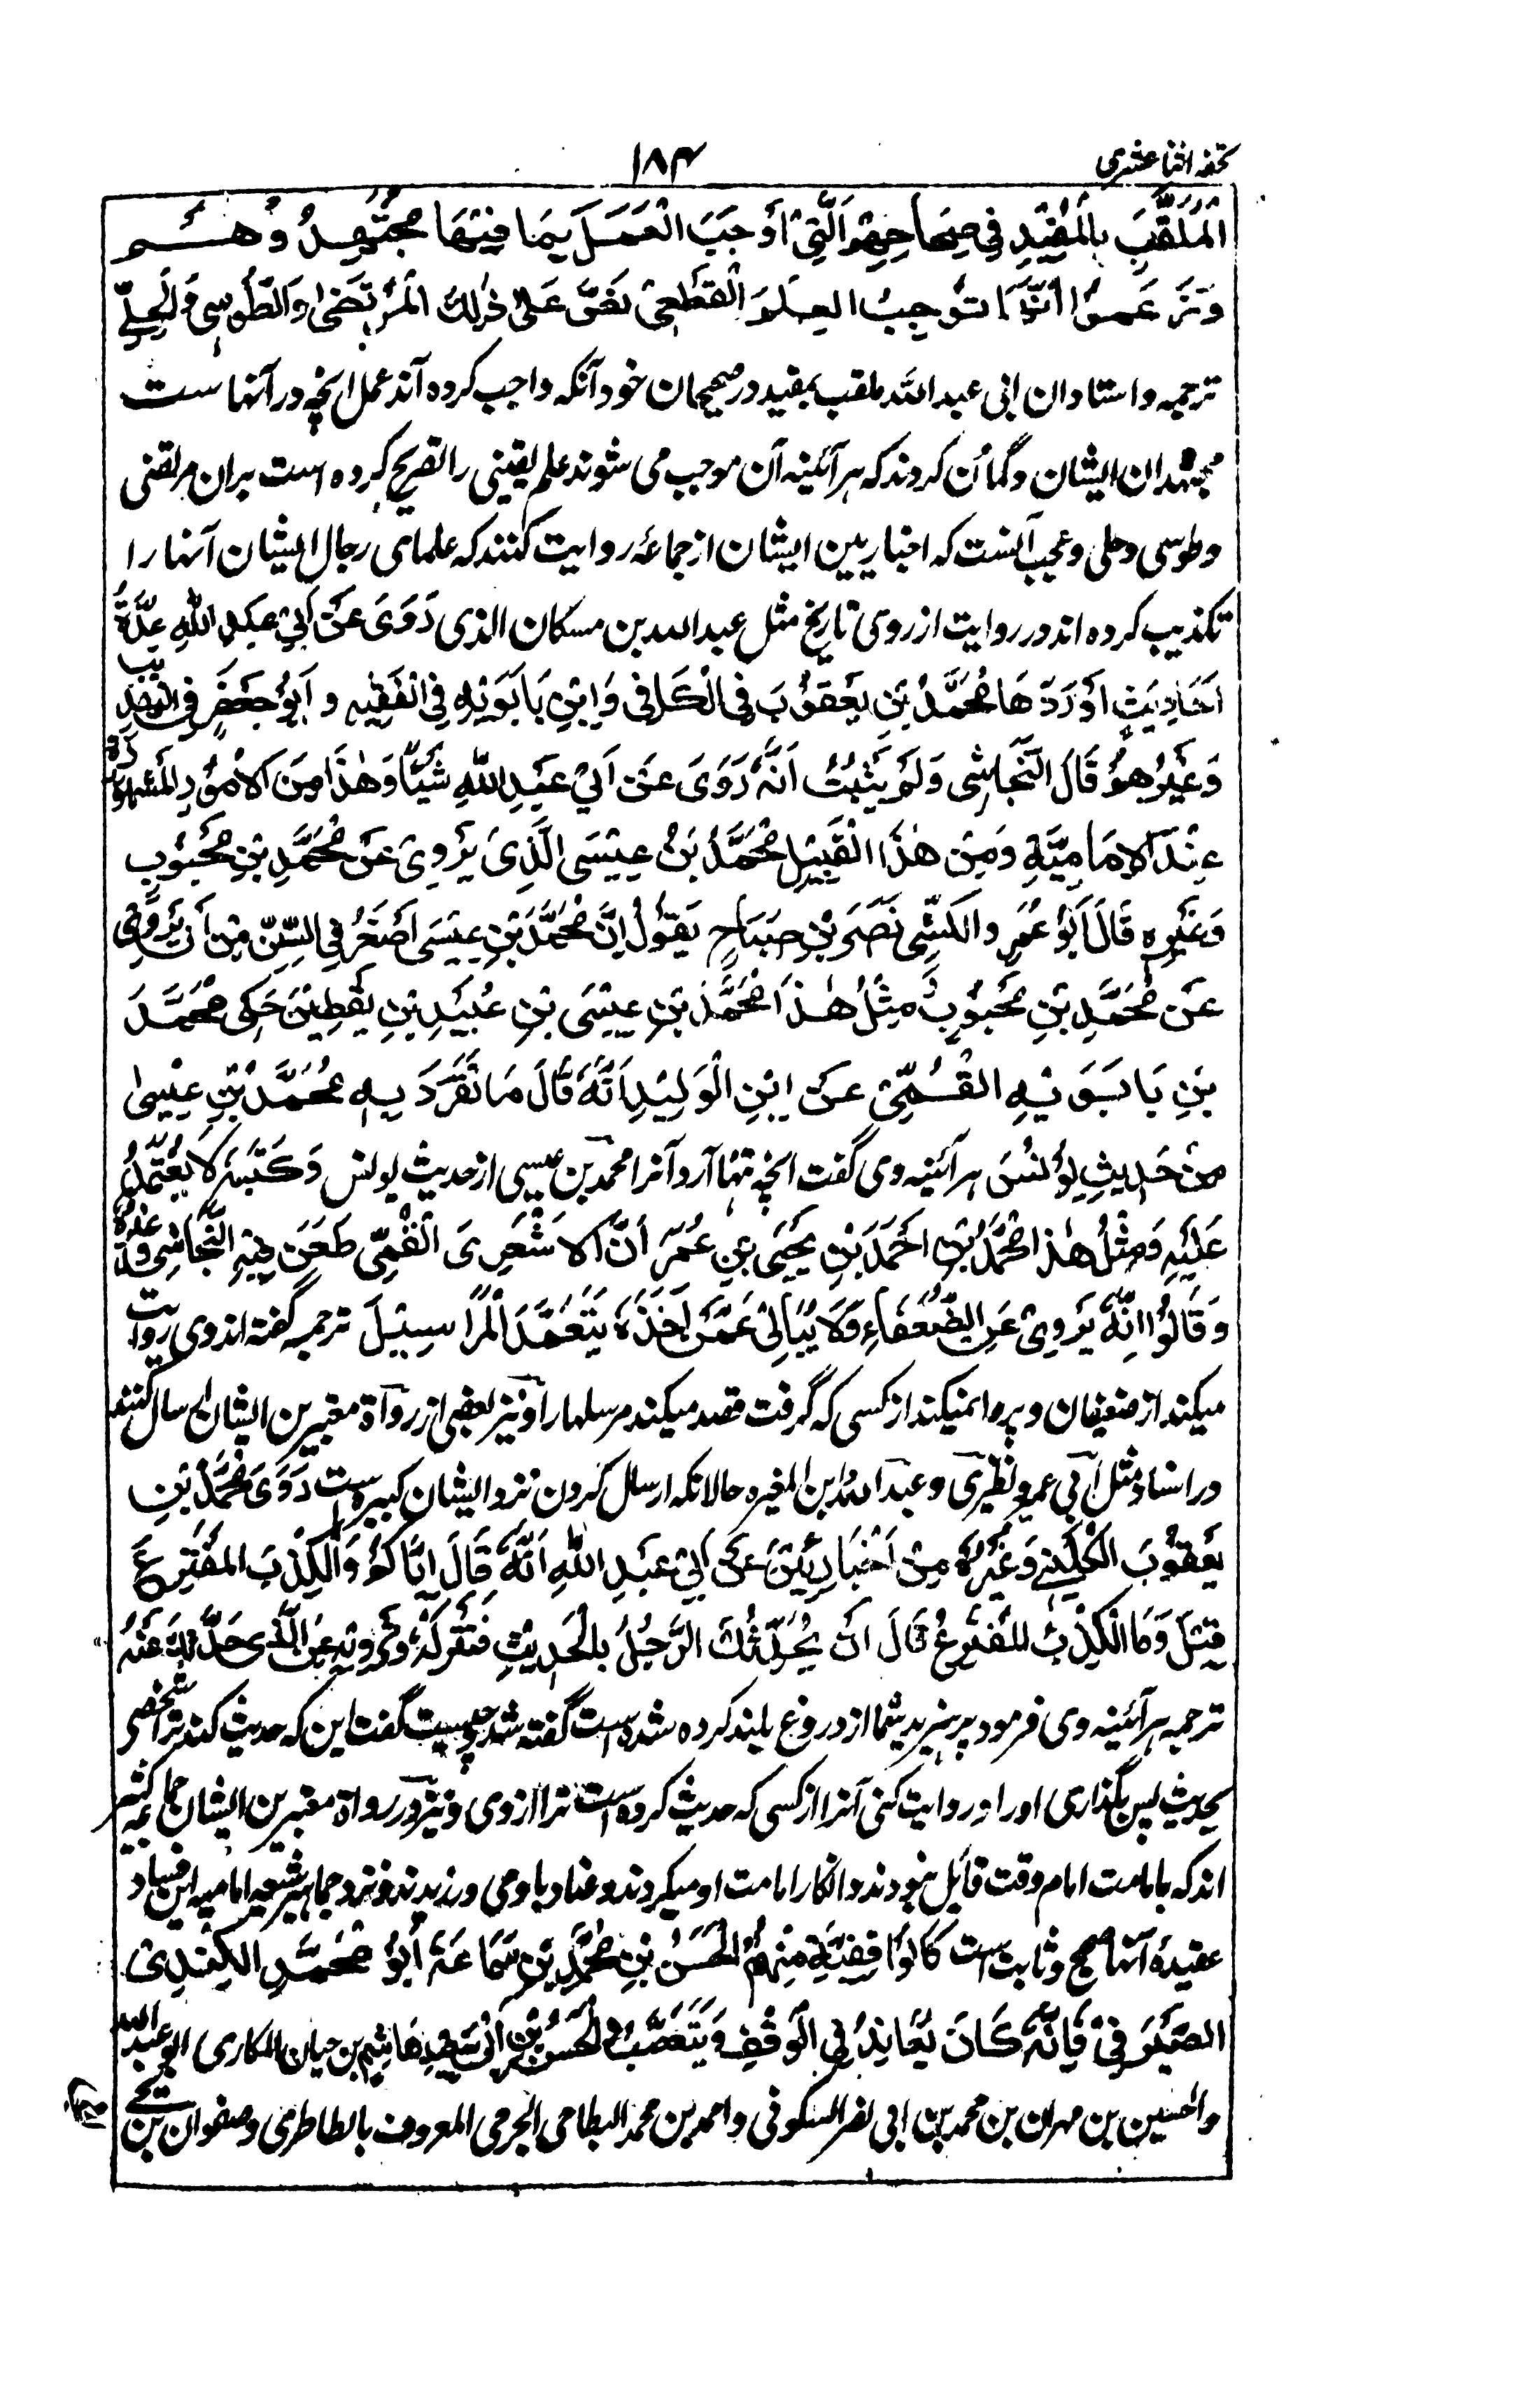 تحفه اثنا عشری
۱۸۴
الْمُلَقَّبِ بِالْمُفِيْدِ فِي صِحَاحِهِمُ الَّتِيْ أَوْجَبَ الْعَمَلَ بِمَا فِيْهَا مُجْتَهِدُوْهُمْ
وَزَعَمُوْا أَنَّهَا تُوْجِبُ الْعِلْمَ الْقَطْعِيَّ نَصَّ عَلَى ذٰلِكَ الْمُرْتَضٰى وَالطُّوْسِي وَالْحِلِّي
ترجمه و استادان ابی عبد الله ملقب بمفید در صحیحان خود آنکه واجب کرده آند عمل انچه در آنها ست
مجتهدان ایشان و گمان کردند که هر آئینه آن موجب می شوند علم یقینی را تصریح کرده است بران مرتضی
و طوسی و حلی و عجب آنست که اخباریین ایشان از جماعۀ روایت کنند که علمای رجال ایشان آنها را
تکذیب کرده اند در روایت از روی تاریخ مثل عبد الله بن مسکان الذی رَوَى عَنْ أَبِيْ عَبْدِ اللهِ عِدَّةَ
اَحَادِيْثَ اَوْرَدَهَا مُحَمَّدُ بْنُ يَعْقُوْبَ فِي الْكَافِي وَابْنُ بَابَوَيْهِ فِي الْفَقِيْهِ و اَبُوْ جَعْفَرٍ فِي التهذيب
وَغَيْرُهُمْ قَالَ النَّجَاشِي وَلَمْ يَثْبُتْ اَنَّهٗ رَوَى عَنْ اَبِيْ عَبْدِ اللهِ شَيْئًا وَهٰذَا مِنَ الْاُمُوْرِ الْمَشْهُوْرَة
عِنْدَ الْاِمَامِيَّةِ وَمِنْ هٰذَا الْقَبِيْلِ مُحَمَّدُ بْنُ عِيْسَى الَّذِيْ يَرْوِيْ عَنْ مُحَمَّدِ بْنِ مَحْبُوْبٍ
وَغَيْرِهٖ قَالَ اَبُوْ عُمَر و الْكَشِّي نَصْرَ بْنَ صَبَاحٍ يَقُوْلُ اِنَّ مُحَمَّدَ بْنَ عِيْسَى اَصْغَرُ فِي السِّنِّ مِنْ اَنْ يَرْوِيَ
عَنْ مُحَمَّدِ بْنِ مَحْبُوْبٍ وَمِثْلُ هٰذَا مُحَمَّدُ بْنُ عِيْسَى بْنِ عُبَيْدِ بْنِ يَقْطِيْنَ حَكٰى مُحَمَّدُ
بْنِ بَابَوَيْهِ الْقُمِّيْ عَنِ ابْنِ الْوَلِيْدِ اَنَّهٗ قَالَ مَا تَفَرَّدَ بِهٖ مُحَمَّدُ بْنُ عِيْسٰى
مِنْ حَدِيْثِ يُوْنُسَ هر آئینه وی گفت انچه تنها آرد آنرا محمد بن عیسی از حدیث یونس وَكُتُبِهٖ لَا يُعْتَمَدُ
عَلَيْهِ وَمِثْلُ هٰذَا مُحَمَّدُ بْنُ اَحْمَدَ بْنِ يَحْيَى بْنِ عُمَرَ اَنَّ الْاَشْعَرِيَ الْقُمِّي طَعَنَ فِيْهِ النَّجَاشِي وَغَيْرُهٗ
وَقَالُوْا اِنَّهٗ يَرْوِيْ عَنِ الضُّعَفَاءِ وَلَا يُبَالِيْ عَمَّنْ اَخَذَهٗ يَتَعَمَّدُ الْمَرَاسِيْلَ ترجمه گفته اند وی روایت
میکند از ضعیفان و پروا نمیکند از کسی که گرفت قصد میکند مرسلها را و نیز بعضی از رواة معتبرین ایشان ارسال کنند
در اسناد مثل ابی عمیر و نظیری و عبد الله ابن المغیره حالانکه ارسال کردن نزد ایشان کبیره است رَوَى مُحَمَّدُ بْنُ
يَعْقُوْبَ الْكُلَيْنِيْ وَغَيْرُهٗ مِنْ اَخْبَارِيِّيْنَ عَنْ اَبِيْ عَبْدِ اللهِ اَنَّهٗ قَالَ اِيَّاكُمْ وَالْكِذْبَ الْمُفْتَرِعَ
قِيْلَ وَمَا الْكِذْبُ الْمُفْتَرِعُ قَالَ اَنْ يُحَدِّثَكَ الرَّجُلُ بِالْحَدِيْثِ فَتَتْرُكَهٗ وَتَرْوِيَهٗ عَنِ الَّذِي حَدَّثَكَ عَنْهُ
ترجمه هر آئینه وی فرمود پرهیزید شما از دروغ بلند کرده شده است گفته شد چیست گفت این که حدیث کند ترا شخصی
بحدیث پس بگذاری اورا و روایت کنی آنرا از کسی که حدیث کرده است ترا ازوی و نیز در رواة معتبرین ایشان جماعه کثیر
اند که بامامت امام وقت قائل نبودند و انکار امامت او میکردند و عناد باوی می ورزیدند و نزد جماهیر شیعه امامیه این فساد
عقیدۀ آنها صحیح و ثابت است كَالْوَاقِفِيَّةِ مِنْهُمُ الْحَسَنُ بْنُ مُحَمَّدِ بْنِ سَمَاعَةَ اَبُوْ مُحَمَّدِ الْكِنْدِيْ
الصَّيْرَفِيْ فَاِنَّهٗ كَانَ يُعَانِدُ فِي الْوَقْفِ وَيَتَعَصَّبُ وَالْحَسَنُ بْنُ اَبِي سَعِيْدِ هَاشِم بن حیان المکاری ابو عبد الله
و الحسین بن مهران بن محمد بن ابی نصر السکونی و احمد بن محمد البطاحی الجرمی المعروف بالطاطری و صفوان بن یحیے